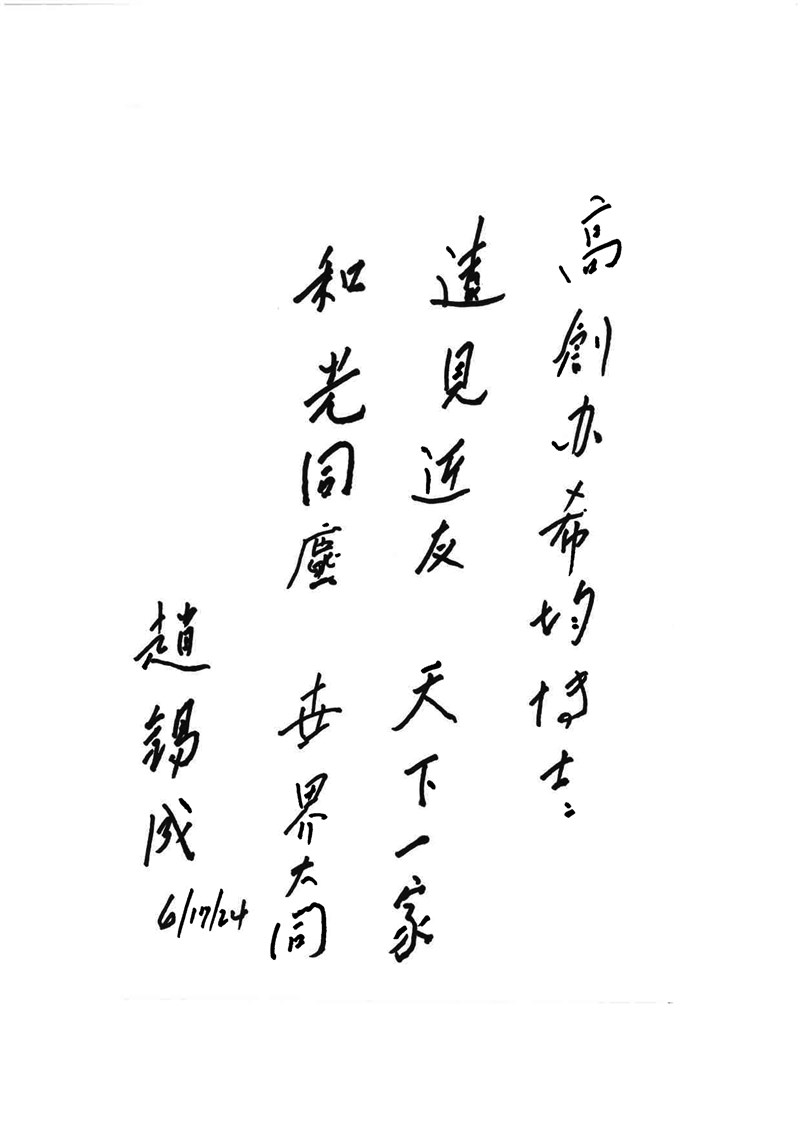 高創办希均博士:
遠見近友 天下一家
和光同塵 世界大同
趙錫成
6/17/24